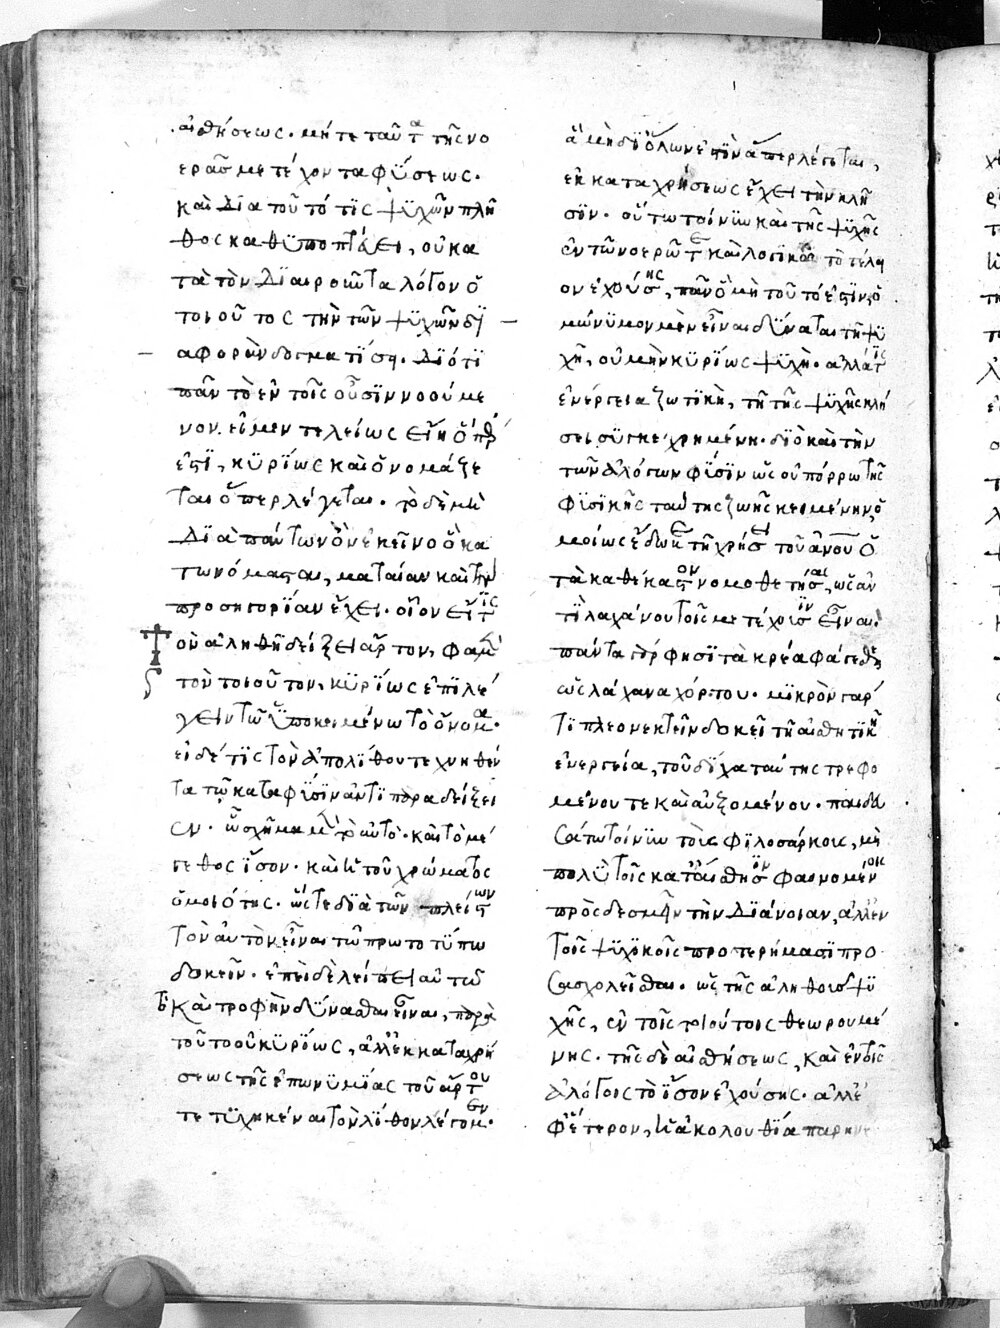 αἰσθήσεως. μήτε ταῦτα τῆς νο
ερᾶς μετέχοντα φύσεως.
καὶ διὰ τοῦτό τις ψυχῶν πλῆ
θος καθυποπτεύει, οὐ κα
τὰ τὸν διαιροῦντα λόγον ὁ
τοιοῦτος τὴν τῶν ψυχῶν δι
αφορὰν δογματίσῃ. διότι
πᾶν τὸ ἐν τοῖς οὖσιν νοούμε
νον. εἰ μὲν τελείως εἴη ὅπερ
ἐστὶ, κυρίως καὶ ὀνομάζε
ται ὅπερ λέγεται. τὸ δὲ μὴ
διὰ πάντων ὂν ἐκεῖνο ὃ κα
τωνόμασται, ματαίαν καὶ τὴν
προσηγορίαν ἔχει. οἷον εἴ τις
τὸν ἀληθῆ δείξει ἄρτον, φαμὲν
τὸν τοιοῦτον, κυρίως ἐπιλέ
γειν τῶ ὑποκειμένω τὸ ὄνομα.
εἰ δέ τις τὸν ἀπὸ λίθου τεχνηθέν
τα τῶ κατα φύσιν ἀντιπαραδείξει
εν. ὧ σχῆμα μὲν τὸ αὐτὸ. καὶ τὸ μέ
γεθος ἴσον. καὶ ἡ τοῦ χρώματος
ὁμοιότης. ὥστε διὰ τῶν πλείστων
τὸν αὐτὸν εἶναι τῶ πρωτοτύπω
δοκεῖν. ἐπιδὲ λείπει αὐτῶ
καὶ τροφὴν δύνασθαι εἶναι, παρὰ
τοῦτο οὐ κυρίως, ἀλλ' ἐκ καταχρή
σεως τῆς ἐπωνυμίας τοῦ ἄρτου
τετυχηκέναι τὸν λίθον λέγομεν.
ἃ μὴ δι' ὅλων ἐστὶν ἅπερ λέγεται,
ἐκ καταχρήσεως ἔχει τὴν κλῆ
σιν. οὕτω τοίνυν καὶ τῆς ψυχῆς
ἐν τῶ νοερῶ τε καὶ λογικῶ τὸ τέλει
ον ἐχούσης, πᾶν ὃ μὴ τοῦτό ἐστιν, ὁ
μώνυμον μὲν εἶναι δύναται τῆ ψυ
χῆ, οὐ μὴν κυρίως ψυχὴ. ἀλλά τις
ἐνέργεια ζωτικὴ, τῆ τῆς ψυχῆς κλή
σει συγκεχρημένη. διὸ καὶ τὴν
τῶν ἀλόγων φύσιν ὡς οὐ πόρρω τῆς
φυσικῆς ταύτης ζωῆς κειμένην, ὁ
μοίως ἔδωκε τῆ χρήσει τοῦ ἀνου ὁ
τὰ καθέκαστον νομοθετήσας, ὡς ἀν
τὶ λαχάνου τοῖς μετέχουσιν εἶναι.
πάντα γάρ φησι τὰ κρέα φάγεσθε
ὡς λάχανα χόρτου. μικρὸν γάρ
τι πλεονεκτεῖν δοκεῖ τῆ αἰσθητικῆ
ἐνεργεία, τοῦ δίχα ταύτης τρεφο
μένου τε καὶ αὐξομένου. παιδευ
σάτω τοίνυν τοὺς φιλοσάρκους, μὴ
πολὺ τοῖς κατ' αἴσθησιν φαινομένοις
προσδεσμεῖν τὴν διάνοιαν, ἀλλ' ἐν
τοῖς ψυχικοῖς προτερήμασι προ
σασχολεῖσθαι. ὡς τῆς ἀληθοῦς ψυ
χῆς, ἐν τοῖς τοιούτοις θεωρουμέ
νης. τῆς δὲ αἰσθήσεως, καὶ ἐν τοῖς
ἀλόγοις τὸ ἴσον ἐχούσης. ἀλλ' ἐ
φ' ἕτερον, ἡ ἀκολουθία παρηνε